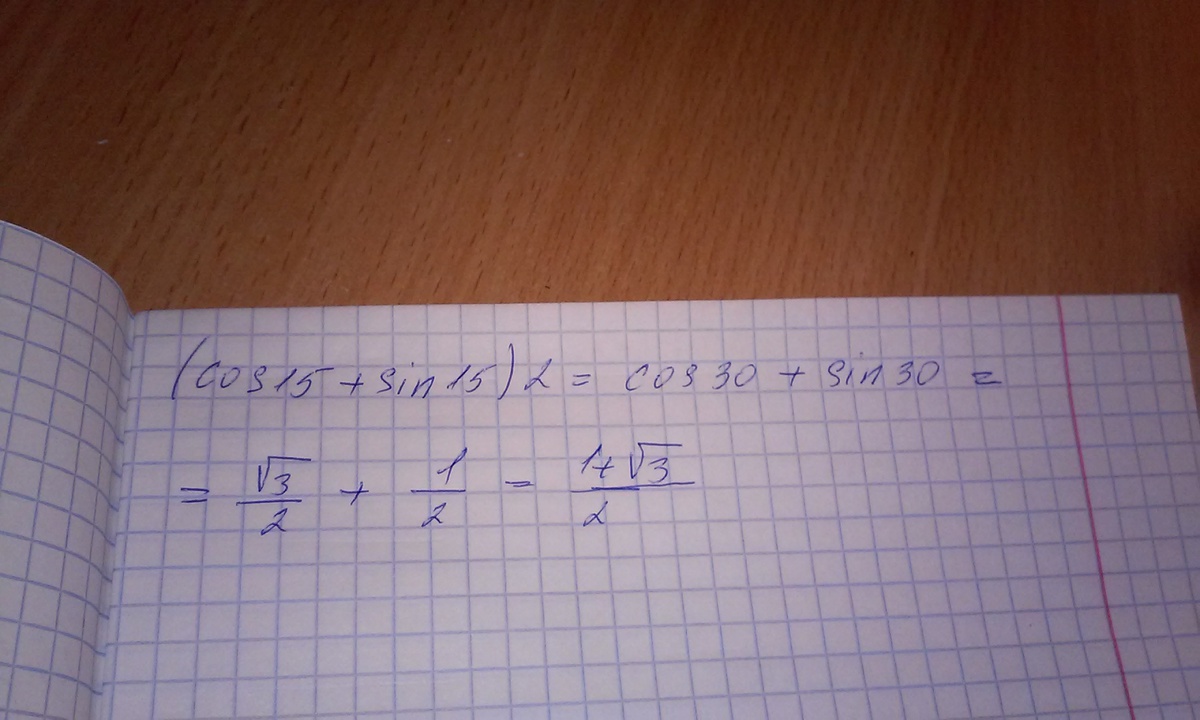 (cos15 + sin15)2 = cos30 + sin30 =
= √3/2 + 1/2 = 1+√3/2